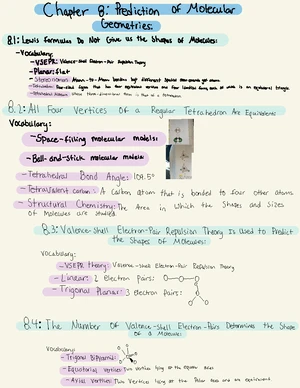 Chapter 8: Prediction of Molecular
Geometries:
8.1: Lewis Formulas Do Not Give us the Shapes of Molecules:
-Vocabulary:
-VSEPR: Valence-Shell Electron-Pair Repulsion Theory
-Planar: flat
-Stereoisomers: Atom-to-Atom bonding but different Spatial
8.2: All Four Vertices Of a Regular Tetrahedron Are Equivalent:
Vocabulary:
-Space-filling molecular models:
-Ball-and-stick molecular models:
-Tetrahedral Bond Angle: 109.5°
-Tetravalent carbon: A Carbon atom that is bonded to four other atoms
-Structural Chemistry: The Area in which the Shapes and Sizes
of Molecules are Studied
8.3: Valence-Shell Electron-Pair Repulsion Theory is Used to Predict
the Shapes of Molecules:
Vocabulary:
-VSEPR theory: Valence-shell Electron-Pair Repulsion Theory
-Linear: 2 Electron Pairs:
-Trigonal Planar: 3 Electron Pairs:
8.4: The Number of Valence-Shell Electron-Pairs Determines the Shape
of a Molecule:
Vocabulary:
-Trigonal Bipyramid:
-Equatorial Vertices: Two Vertices lying at the equator
-Axial Vertices: Two Vertices lying at the Poles